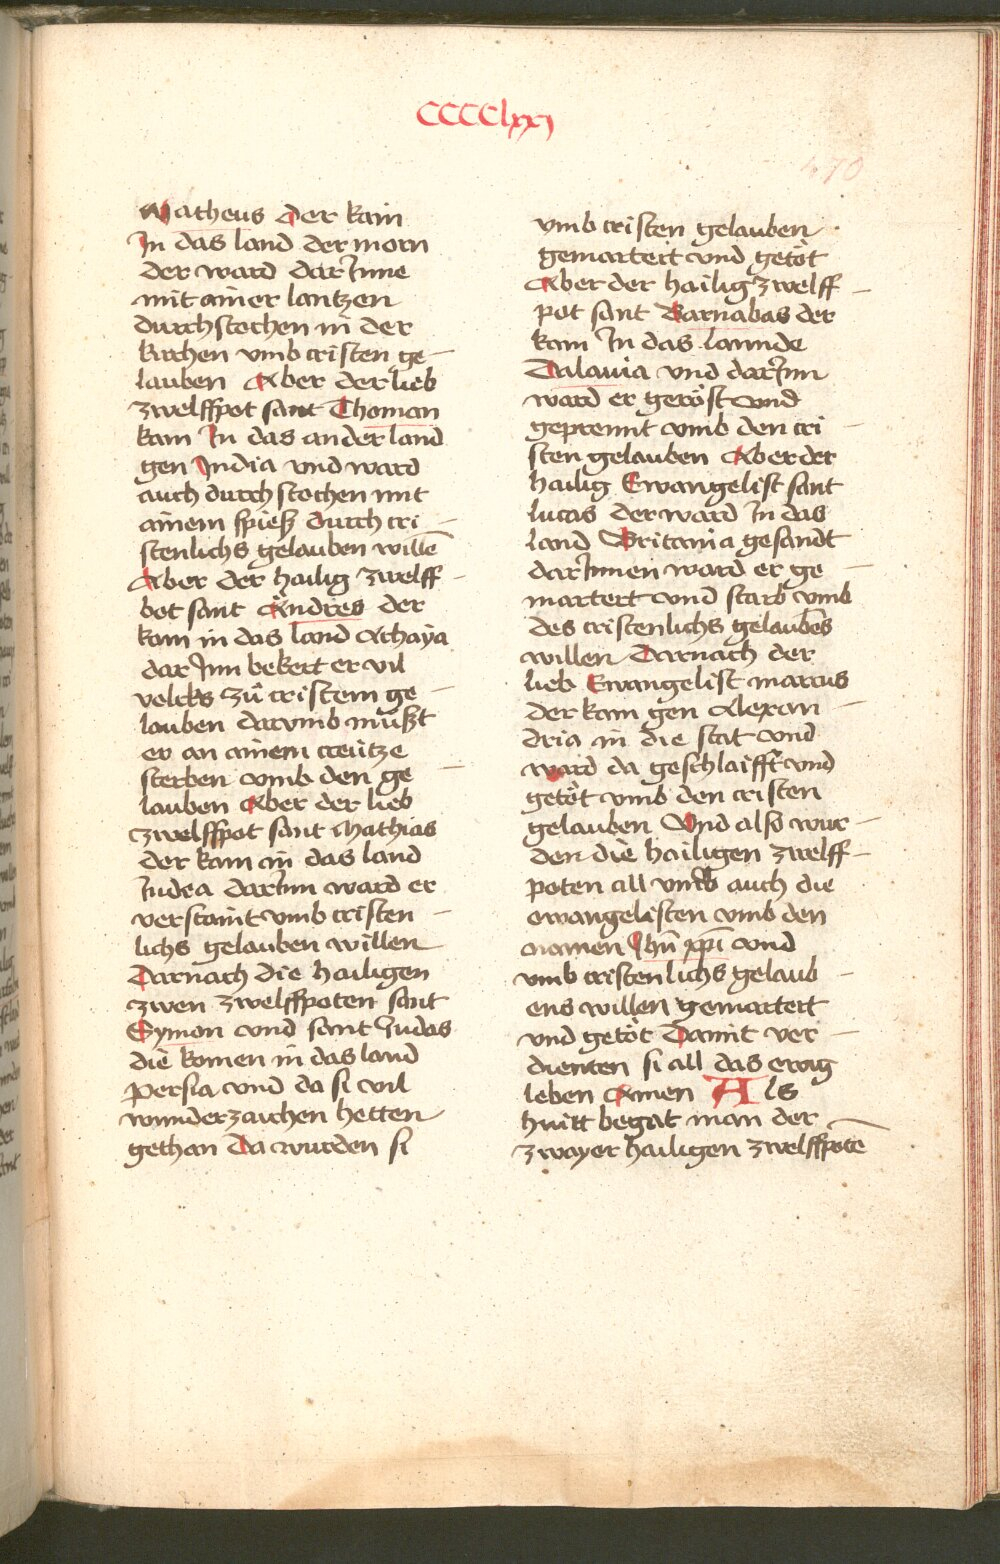 CCCClxxj
470
Matheus der kam
In das land der morn
der ward dar Inne
mit ainer lantzen
durchstochen in der
kirchen vmb cristen ge–
lauben Aber der lieb
zwelffpot sant Thoman
kam In das ander land
gen India vnd ward
auch durch stochen mit
ainem spiesz durch cri–
stenlichs gelauben willē
Aber der hailig zwelff–
bot sant Andres der
kam in das land Achaÿa
dar Inn bekert er vil
velcks zů cristem ge–
lauben darvmb můszt
er an ainem creütze
sterben vmb den ge–
lauben Aber der lieb
zwelffpot sant Mathias
der kam in das land
Judea darInn ward er
verstaint vmb cristen–
lichs gelauben willen
Darnach die hailigen
zwen zwelffpoten sant
Symon vnd sant Judas
die komen in das land
persia vnd da si vil
wunderzaichen hetten
gethan Da wurden si
vmb cristen gelauben
gemartert vnd getöt
Aber der hailig zwelff–
pot sant Barnabas der
kam In das lannde
Dalauia vnd darInn
ward er geröst vnd
geprennt vmb den cri–
sten gelauben Aber der
hailig Ewangelist sant
lucas der ward In das
land Britania gesandt
darInnen ward er ge–
martert vnd starb vmb
des cristenlichs gelaubēs
willen Darnach der
lieb Ewangelist marcus
der kam gen Alexan–
dria in die stat vnd
ward da geschlaifft vnd
getöt vmb den cristen
gelauben Vnd also wur–
den die hailigen zwelff–
poten all vnd auch die
ewangelisten vmb den
namen Jhū xpī vnd
vmb cristenlichs gelaub–
ens willen gemartert
vnd getöt Damit ver–
dienten si all das ewig
leben Amen Als
hütt begat man der
zwayer hailigen zwelffpotē